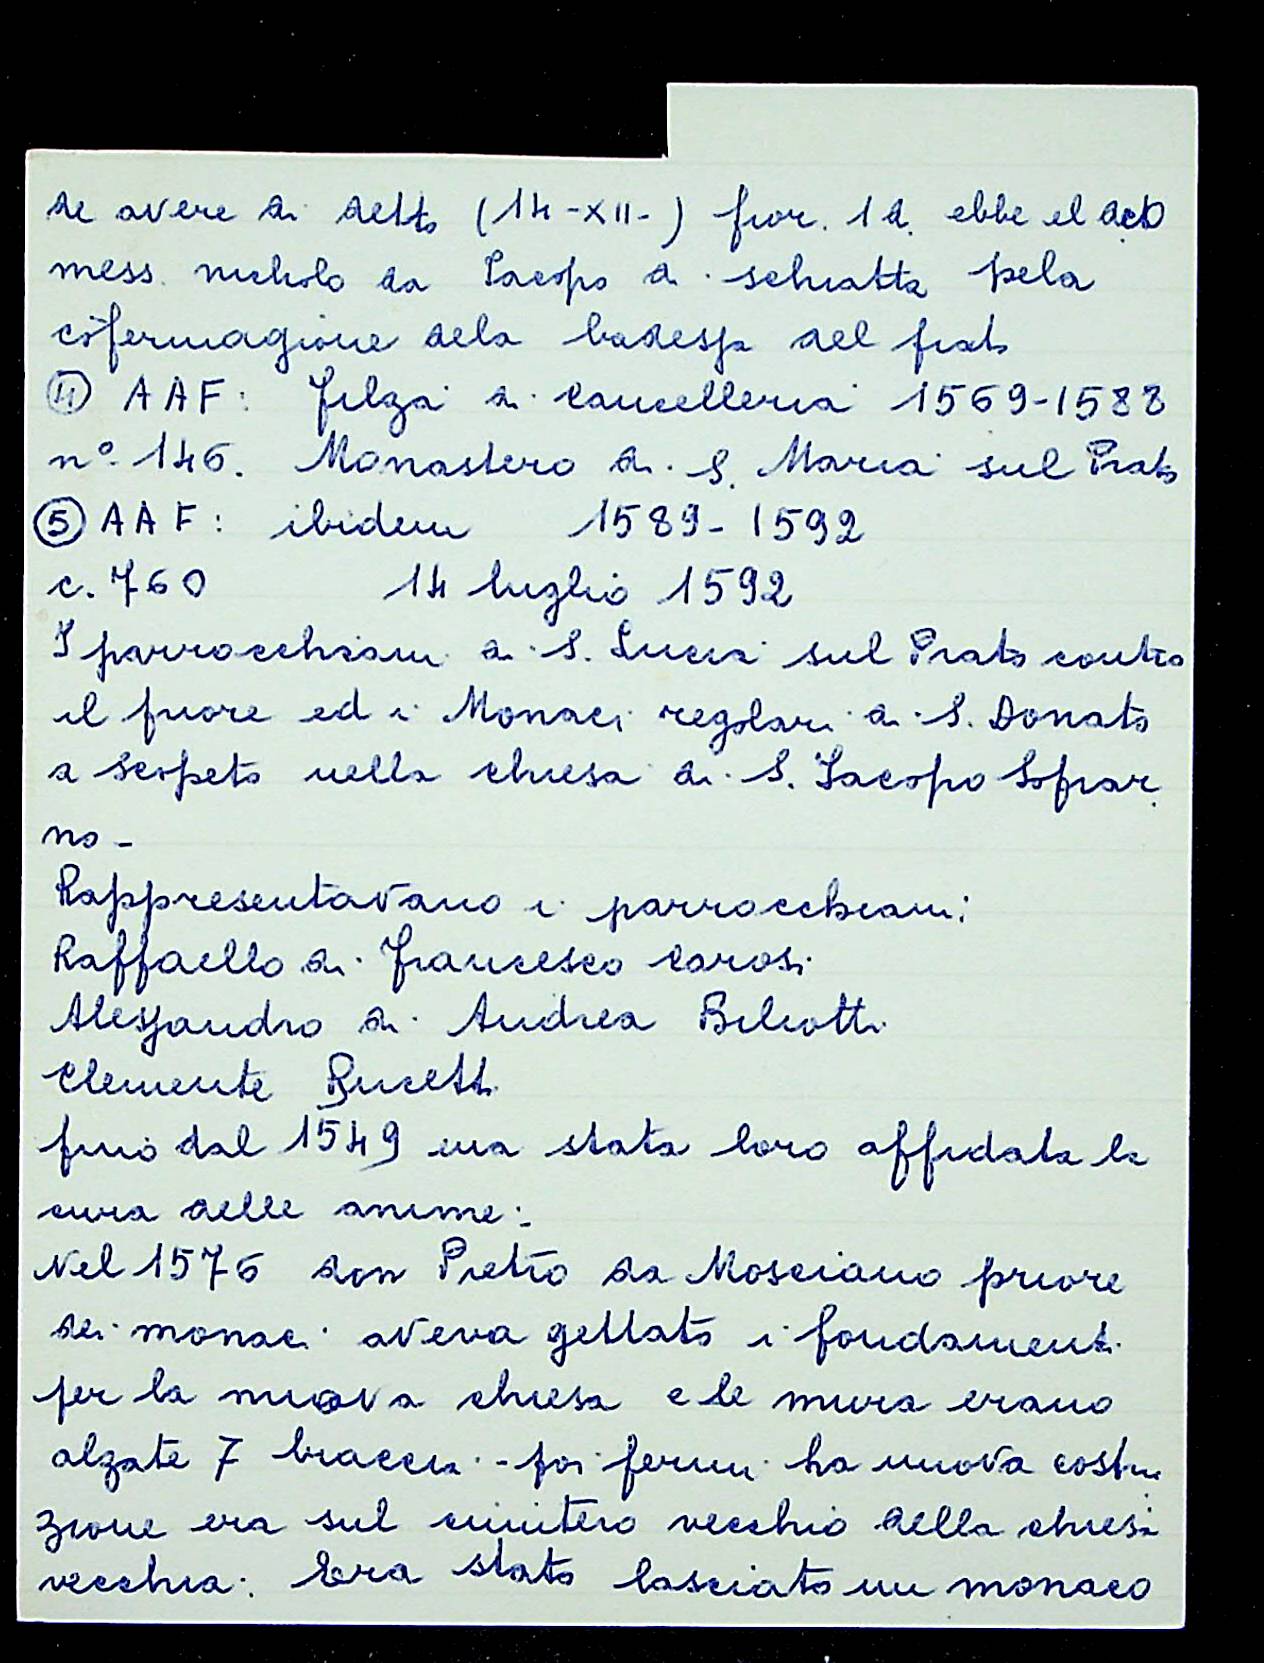 de avere di detto (14-XII-) fior. 1 d. ebbe el deto
mess. nicholo da Iacopo di schiatta pela
cõfermagione dela badessa del prato
④ AAF: Filza di Cancelleria 1569-1588
nº. 146. Monastero di S. Maria sul Prato
⑤ AAF: ibidem 1589-1592
c. 760 14 luglio 1592
I parrocchiani di S. Lucia sul Prato contro
il priore ed i Monaci regolari di S. Donato
a Scopeto nella chiesa di S. Iacopo Soprar
no-
Rappresentavano i parrocchiani:
Raffaello di Francesco Carosi
Alessandro di Andrea Biliotti
Clemente
fino dal 1549 era stata loro affidata la
cura delle anime:
Nel 1576 don Pietro da Mosciano priore
dei monaci aveva gettato i fondamenti
per la nuova chiesa e le mura erano
alzate 7 braccia - poi fermi. La nuova costru
zione era sul cimitero vecchio della chiesa
vecchia. Era stato lasciato un monaco